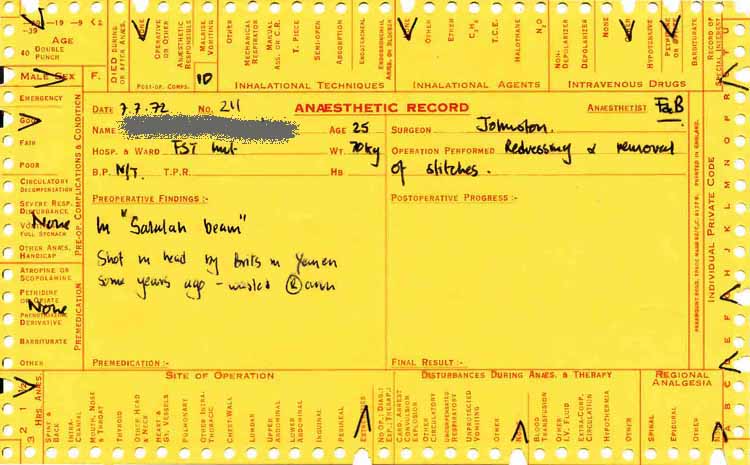 -19 -9
-39
40 AGE
DOUBLE
PUNCH
MALE SEX F.
DIED DURING
OR AFTER ANÆS.
NONE
OPERATIVE
OR OTHER
ANÆSTHESIA
RESPONSIBLE
MALAISE
VOMITING
OTHER
POST-OP. COMPS. 10
MECHANICAL
RESPIRATOR
MANUAL
ASS. OR C.R.
T. PIECE
SEMI-OPEN
ABSORPTION
ENDOTRACHEAL
INHALATIONAL TECHNIQUES
NONE
OTHER
ETHER
C₃H₆
T.C.E.
HALOTHANE
N₂O
INHALATIONAL AGENTS
NON-
DEPOLARIZER
DEPOLARIZER
NONE
OTHER
HYPOTENSIVE
BARBITURATE
INTRAVENOUS DRUGS
RECORD OF
SPECIAL INTEREST
DATE 7.7.72 NO. 211 ANÆSTHETIC RECORD ANÆSTHETIST F&B
NAME AGE 25 SURGEON Johnston.
HOSP. & WARD FST hut WT. 70kg OPERATION PERFORMED Redressing & removal
B.P. N/T. T.P.R. HB of stitches.
PREOPERATIVE FINDINGS :- POSTOPERATIVE PROGRESS :-
In "Salalah beam"
Shot in head by Brits in Yemen
some years ago - wasted Ⓡ arm
PREMEDICATION :- FINAL RESULT :-
EMERGENCY
GOOD
FAIR
POOR
CIRCULATORY
DECOMPENSATION
SEVERE RESP.
DISTURBANCE
None
VOMITING
FULL STOMACH
OTHER ANÆS.
HANDICAP
PRE-OP. COMPLICATIONS & CONDITION
ATROPINE OR
SCOPOLAMINE
PETHIDINE
OR OPIATE
None
PHENOTHIAZINE
DERIVATIVE
BARBITURATE
OTHER
PREMEDICATION
INDIVIDUAL PRIVATE CODE
A B C D E F G H J K L M N O P
PRINTED IN ENGLAND.
SITE OF OPERATION
HRS. ANÆS.
3 2 1 ½
SPINE &
BACK
INTRA-
CRANIAL
MOUTH, NOSE
& THROAT
THYROID
OTHER HEAD
& NECK
HEART &
GT. VESSELS
PULMONARY
OTHER INTRA-
THORACIC
CHEST-WALL
LUMBAR
UPPER
ABDOMINAL
LOWER
ABDOMINAL
INGUINAL
PERINEAL
EXTREMITIES
DISTURBANCES DURING ANÆS. & THERAPY
CARD. ARREST
CONVULSION
EXPLOSION
OTHER
CIRCULATORY
UNCOMPENSATED
RESPIRATORY
UNPREJUDICED
VOMITING
OTHER
NONE
BLOOD
TRANSFUSION
OTHER
I.V. FLUID
EXTRA-CORP.
CIRCULATION
HYPOTHERMIA
OTHER
REGIONAL
ANALGESIA
SPINAL
EPIDURAL
OTHER